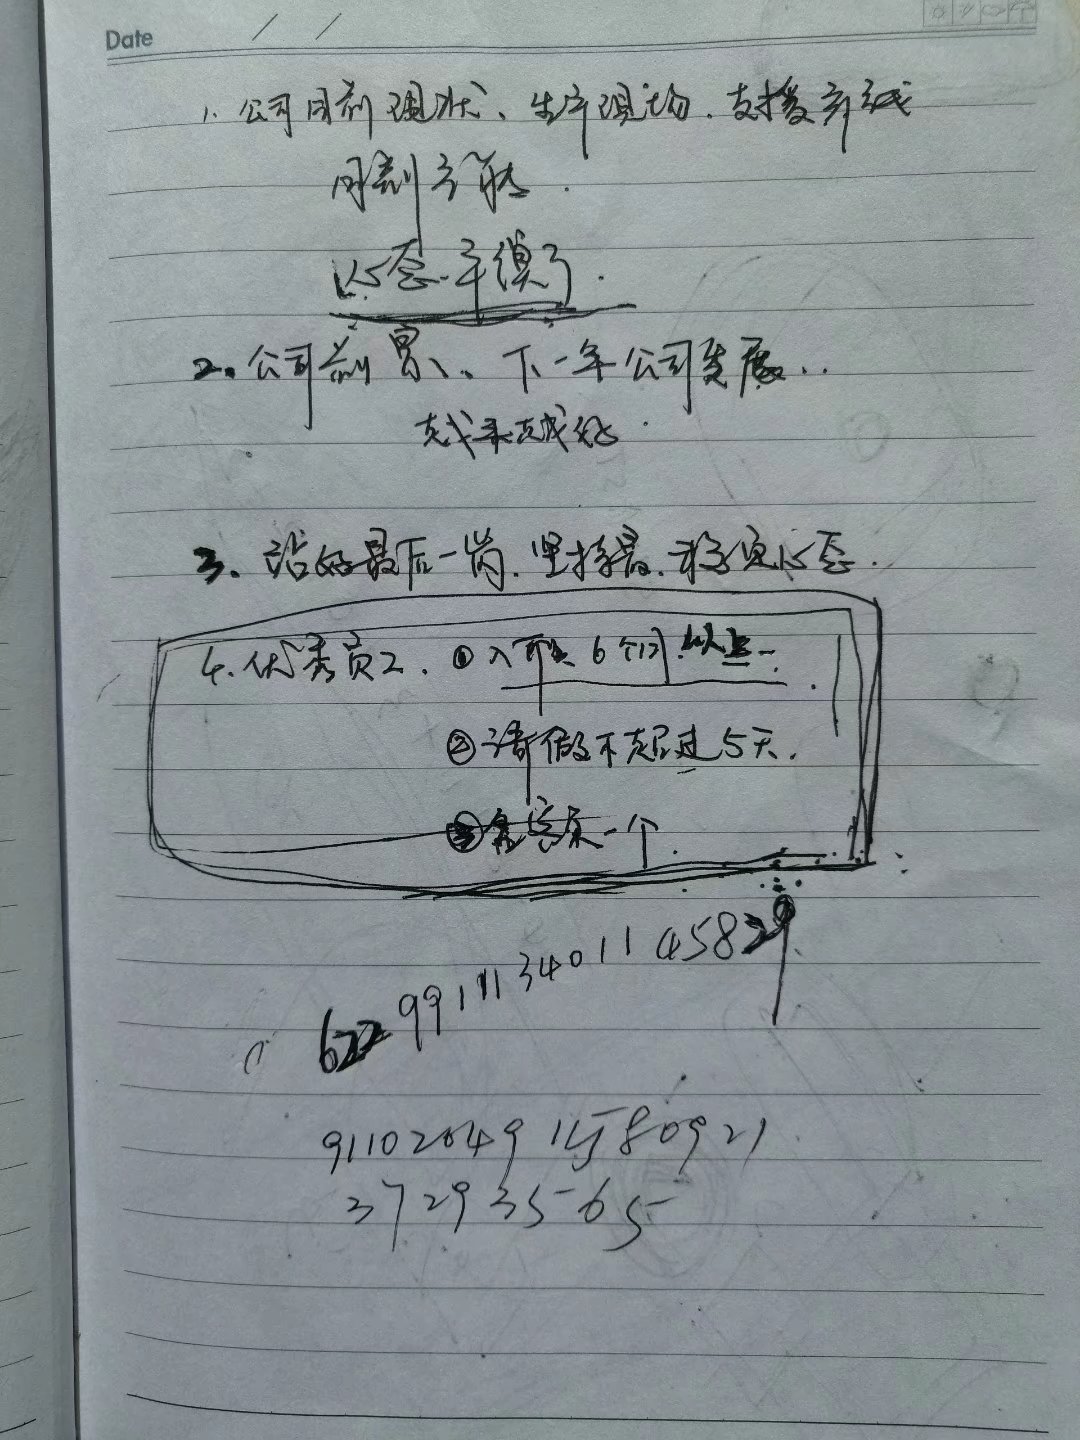 Date / /
1. 公司目前现状、生产现场、支援产线
目前产能.
心态平缓了.
2. 公司前景、下一年公司发展..
找成绩.
3. 站好最后一岗, 坚持最, 稳定心态.
4. 优秀员工. ① 入职 6个月 以上.
② 请假不超过5天.
一个.
622991113401145829
91102049 1580921
372935565